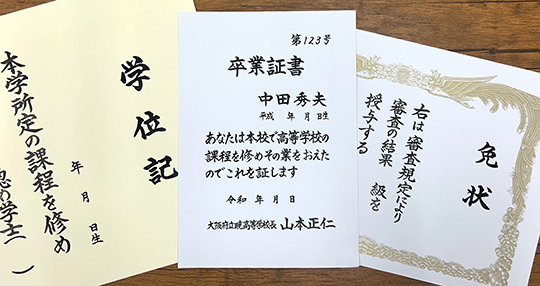 学位記
年　月　日生
本学所定の課程を修め
学士（　）
第123号
卒業証書
中田秀夫
平成　年　月　日生
あなたは本校で高等学校の
課程を修めその業をおえた
のでこれを証します
令和　年　月　日
大阪府立暁高等学校長　山本正仁
免状
右は審査規定により
審査の結果　級を
授与する